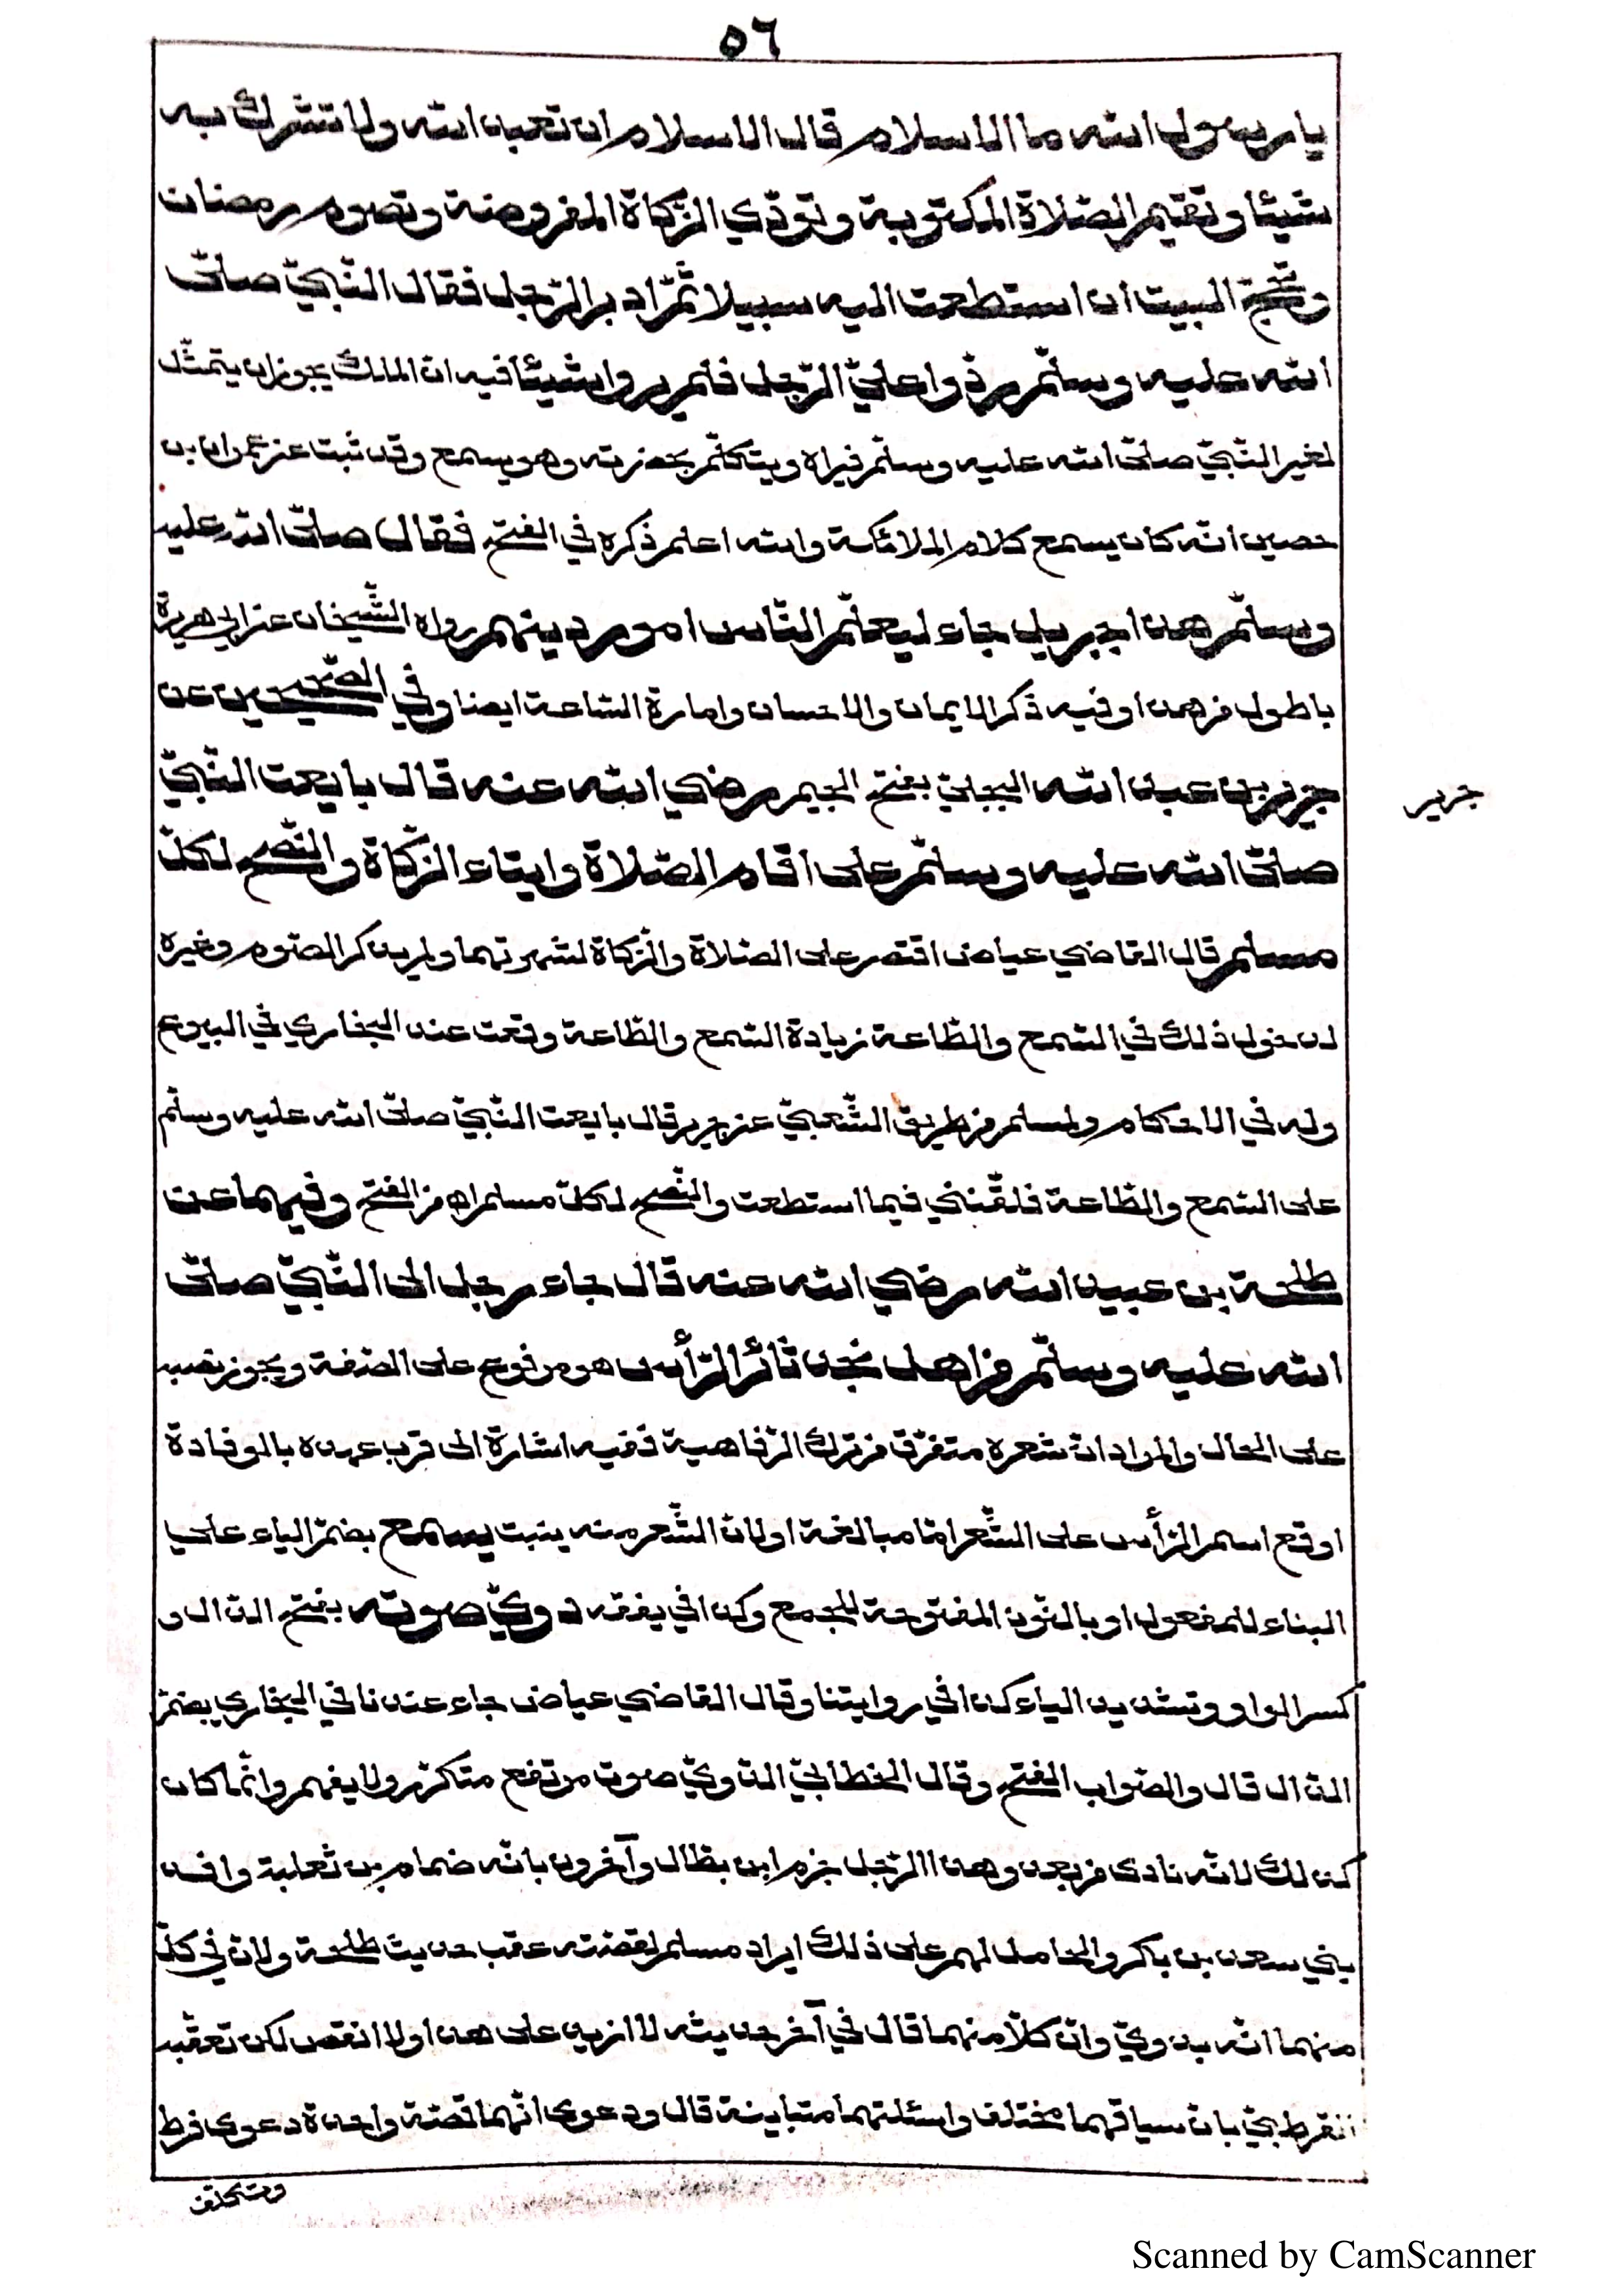 ٥٦
يا رسول الله ما الاسلام قال الاسلام ان تعبد الله ولا تشرك به
شيئا وتقيم الصّلاة المكتوبة وتؤدّي الزّكاة المفروضة وتصوم رمضان
وتحجّ البيت ان استطعت اليه سبيلا ثمّ ادبر الرّجل فقال النّبيّ صلّى
الله عليه وسلّم ردّوا عليّ الرّجل فلم يروا شيئا فيه انّ الملك يجوز ان يتمثّل
لغير النّبيّ صلّى الله عليه وسلّم فيراه ويتكلّم بحضرته وهو يسمع وقد ثبت عن عمران بن
حصين انّه كان يسمع كلام الملائكة والله اعلم ذكره في الفتح فقال صلّى الله عليه
وسلّم هذا جبريل جاء ليعلّم النّاس امور دينهم رواه الشّيخان عن ابي هريرة
باطول من هذا وفيه ذكر الايمان والاحسان وامارة السّاعة ايضا وفي الصّحيحين عن
جرير بن عبد الله البجليّ بفتح الجيم رضي الله عنه قال بايعت النّبيّ
جرير
صلّى الله عليه وسلّم على اقام الصّلاة وايتاء الزّكاة والنّصح لكلّ
مسلم قال القاضي عياض اقتصر على الصّلاة والزّكاة لشهرتهما ولم يذكر الصّوم وغيره
لدخول ذلك في السّمع والطّاعة زيادة السّمع والطّاعة وقعت عند البخاري في البيوع
وله في الاحكام ولمسلم من طريق الشّعبيّ عن جرير قال بايعت النّبيّ صلّى الله عليه وسلّم
على السّمع والطّاعة فلقّنني فيما استطعت والنّصح لكلّ مسلم اه من الفتح وفيهما عن
طلحة بن عبيد الله رضي الله عنه قال جاء رجل الى النّبيّ صلّى
الله عليه وسلّم من اهل نجد ثائر الرّأس هو مرفوع على الصّفة ويجوز نصبه
على الحال والمراد انّ شعره متفرّق من ترك الرّفاهية ففيه اشارة الى قرب عهده بالوفادة
اوقع اسم الرّأس على الشّعر امّا مبالغة او لانّ الشّعر منه ينبت يسمع بضمّ الياء على
البناء للمفعول او بالنّون المفتوحة للجمع وكذا في يفقه دويّ صوته بفتح الدّال و
كسر الواو وتشديد الياء كذا في روايتنا وقال القاضي عياض جاء عندنا في البخاري بضمّ
الدّال قال والصّواب الفتح وقال الخطّابيّ الدّويّ صوت مرتفع متكرّر ولا يفهم وانّما كان
كذلك لانّه نادى من بعد وهذا الرّجل جزم ابن بطّال وآخرون بانّه ضمام بن ثعلبة وافد
بني سعد بن بكر والحامل لهم على ذلك ايراد مسلم لقصّته عقب حديث طلحة ولانّ في كلّ
منهما انّه بدويّ وانّ كلّا منهما قال في آخر حديثه لا ازيد على هذا ولا انقص لكن تعقّبه
القرطبيّ بانّ سياقهما مختلف واسئلتهما متباينة قال ودعوى انّهما قصّة واحدة دعوى فرط
وتكلّف
Scanned by CamScanner